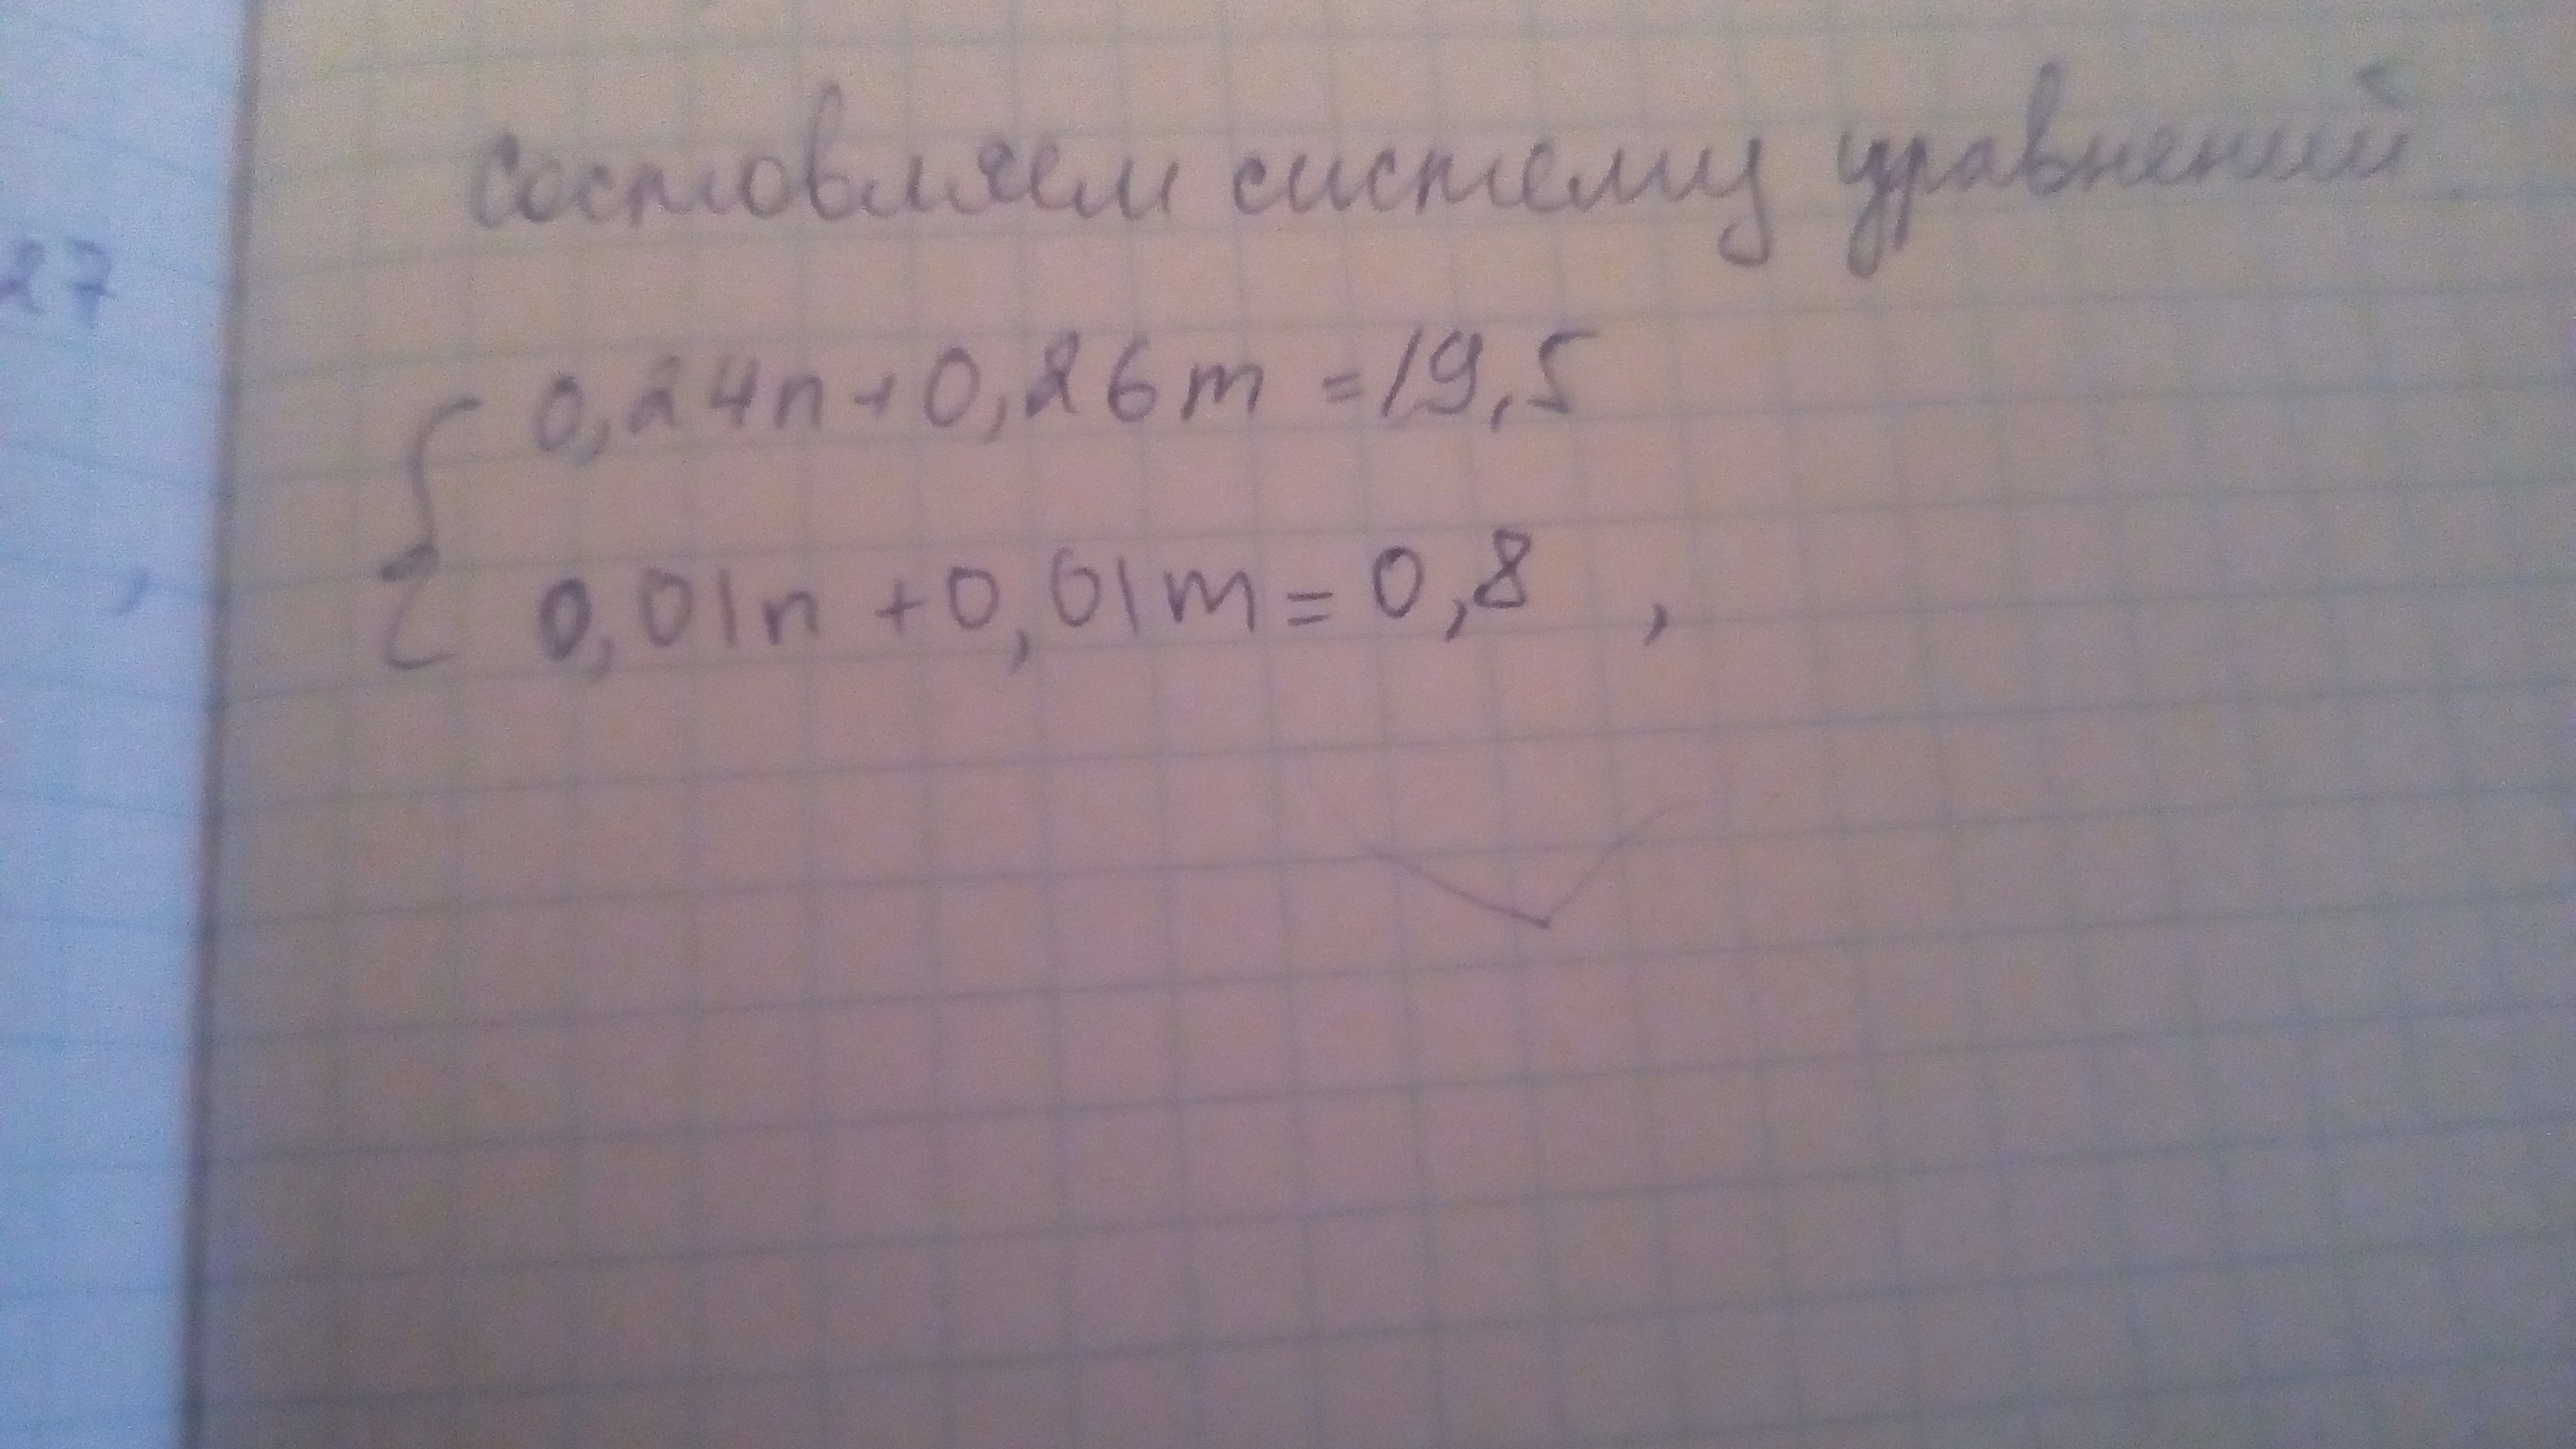 состовляем систему уравнений
27
0,24n+0,26m=19,5
0,01n+0,01m=0,8 ,